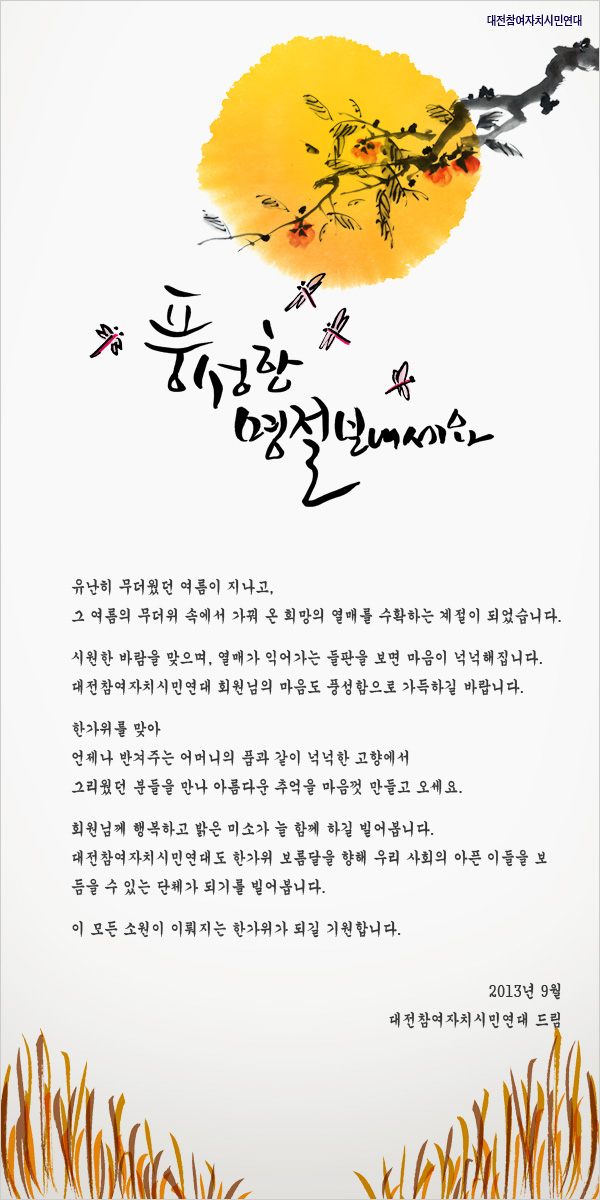 대전참여자치시민연대
풍성한
명절 보내세요
유난히 무더웠던 여름이 지나고,
그 여름의 무더위 속에서 가꿔 온 희망의 열매를 수확하는 계절이 되었습니다.
시원한 바람을 맞으며, 열매가 익어가는 들판을 보면 마음이 넉넉해집니다.
대전참여자치시민연대 회원님의 마음도 풍성함으로 가득하길 바랍니다.
한가위를 맞아
언제나 반겨주는 어머니의 품과 같이 넉넉한 고향에서
그리웠던 분들을 만나 아름다운 추억을 마음껏 만들고 오세요.
회원님께 행복하고 밝은 미소가 늘 함께 하길 빌어봅니다.
대전참여자치시민연대도 한가위 보름달을 향해 우리 사회의 아픈 이들을 보
듬을 수 있는 단체가 되기를 빌어봅니다.
이 모든 소원이 이뤄지는 한가위가 되길 기원합니다.
2013년 9월
대전참여자치시민연대 드림